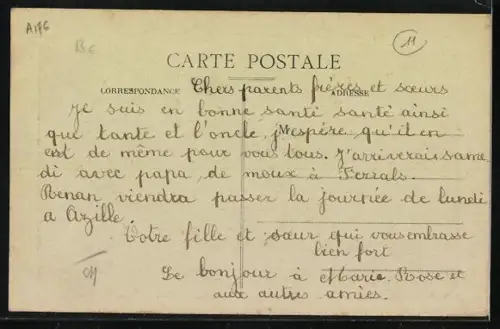 A176
Be
11
CARTE POSTALE
CORRESPONDANCE
ADRESSE
Chers parents frères et sœurs
Je suis en bonne santi santé ainsi
que tante et l'oncle, j'espère qu'il en
est de même pour vous tous. J'arriverai same
di avec papa, de moux à Ferrals.
Renan viendra passer la journée de lundi
a Azille.
Votre fille et sœur qui vous embrasse
bien fort
Le bonjour à Marie Rose et
aux autres amies.